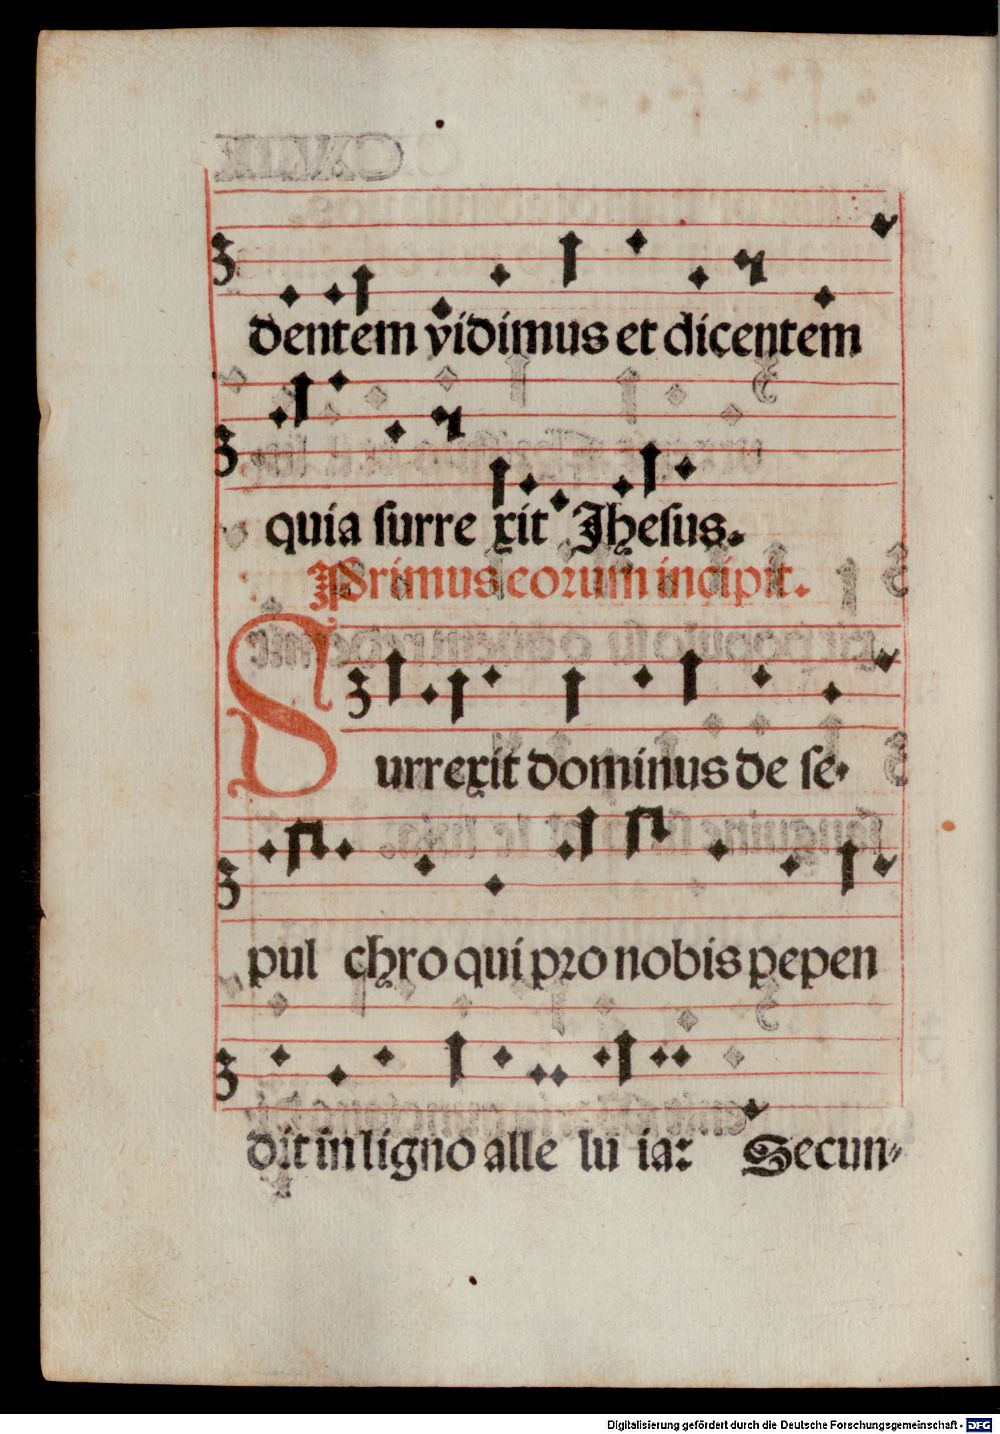 dentem vidimus et dicentem
quia surre xit Jhesus.
Primus eorum incipit.
Surrexit dominus de se
pul chro qui pro nobis pepen
dit in ligno alle lu ia: Secun
Digitalisierung gefördert durch die Deutsche Forschungsgemeinschaft - DFG